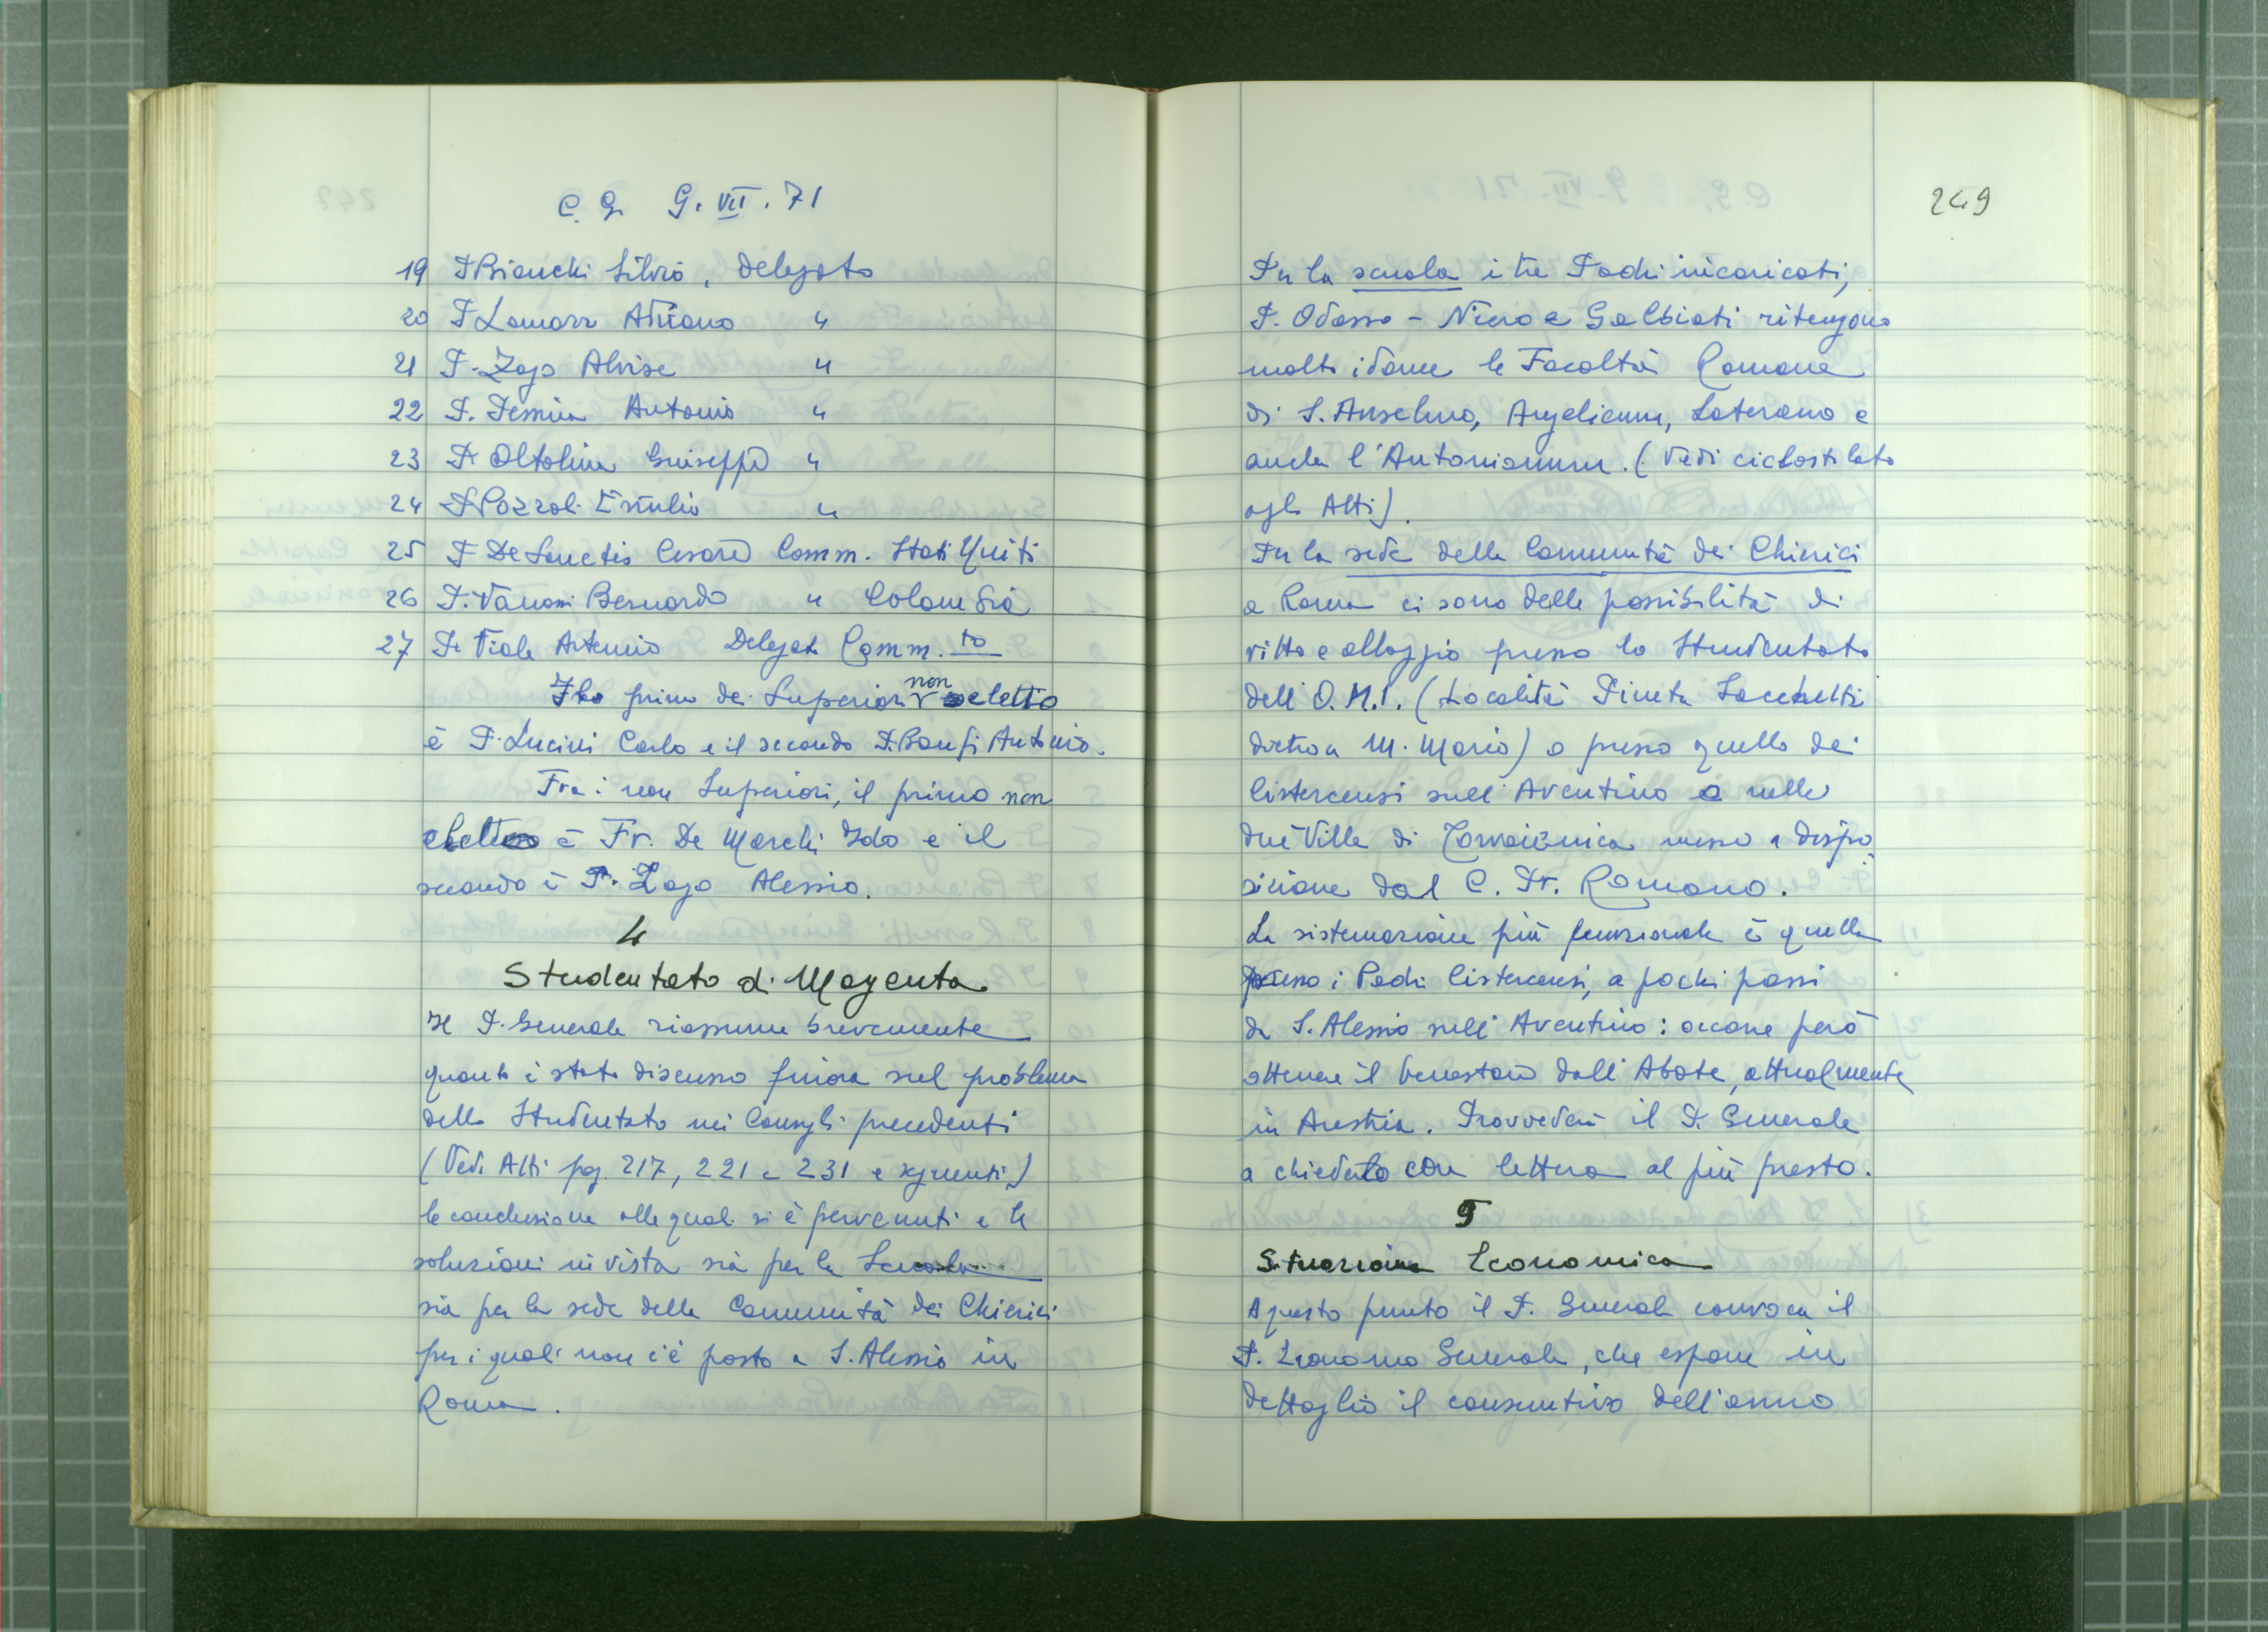 C. G. 9. VII. 71
19 P Bianchi Silvio, Delegato
20 P Lomazzi Adriano "
21 P. Zago Alvise "
22 P. Pessina Antonio "
23 P. Oltolina Giuseppe "
24 P Pozzoli Ersilio "
25 P De Sanctis Cesare Comm. Stati Uniti
26 P. Vanossi Bernardo " Colombia
27 P. Viola Artemio Delegato Comm.to
Il primo dei Superiori non eletto
è P. Lucini Carlo e il secondo P. Banfi Antonio.
Fra i non Superiori, il primo non
eletto è Fr. De Marchi Ido e il
secondo è P. Zago Alessio.
4
Studentato di Magenta
Il P. Generale riassume brevemente
quanto è stato discusso finora sul problema
dello Studentato nei Consigli precedenti
(Vedi Atti pg. 217, 221 e 231 e seguenti)
le conclusione alle quali si è pervenuti e le
soluzioni in vista sia per la Scuola
sia per la sede della Comunità dei Chierici
per i quali non c'è posto a S. Alessio in
Roma.
249
Per la scuola i tre Padri incaricati,
P. Odasso - Niero e Galbiati ritengono
molto idonee le Facoltà Romane
di S. Anselmo, Angelicum, Laterano e
anche l'Antonianum. (Vedi ciclostilato
agli Atti).
Per la sede della Comunità dei Chierici
a Roma ci sono delle possibilità di
vitto e alloggio presso lo Studentato
dell'O.M.I. (Località Pineta Sacchetti
dietro a M. Mario) o presso quello dei
Cistercensi sull'Aventino o nelle
due Ville di Torvaianica messe a dispo
sizione dal C. Fr. Romano.
La sistemazione più funzionale è quella
presso i Padri Cistercensi, a pochi passi
da S. Alessio sull'Aventino: occorre però
ottenere il benestare dall'Abate, attualmente
in Austria. Provvederà il P. Generale
a chiederlo con lettera al più presto.
5
Situazione Economica
A questo punto il P. Generale convoca il
P. Economo Generale, che espone in
dettaglio il consuntivo dell'anno